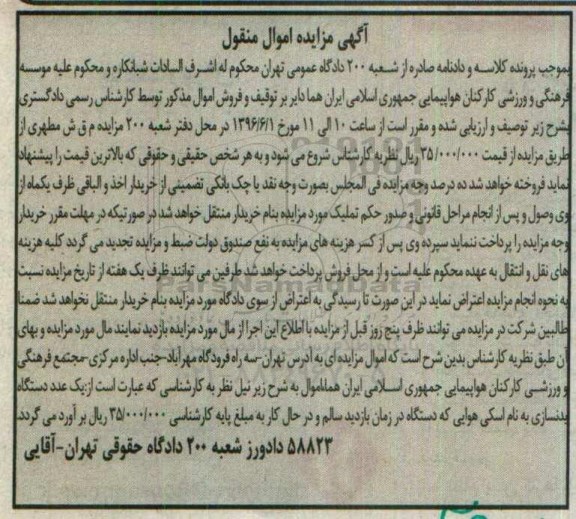 آگهی مزایده اموال منقول
بموجب پرونده کلاسه و دادنامه صادره از شعبه ۲۰۰ دادگاه عمومی تهران محکوم له اشرف السادات شبانکاره و محکوم علیه موسسه
فرهنگی و ورزشی کارکنان هواپیمایی جمهوری اسلامی ایران هما دایر بر توقیف و فروش اموال مذکور توسط کارشناس رسمی دادگستری
بشرح زیر توصیف و ارزیابی شده و مقرر است از ساعت ۱۰ الی ۱۱ مورخ ۱۳۹۶/۶/۱ در محل دفتر شعبه ۲۰۰ مزایده م ق ش مطهری از
طریق مزایده از قیمت ۳۵/۰۰۰/۰۰۰ ریال نظریه کارشناس شروع می شود و به هر شخص حقیقی و حقوقی که بالاترین قیمت را پیشنهاد
نماید فروخته خواهد شد ده درصد وجه مزایده فی المجلس بصورت وجه نقد یا چک بانکی تضمینی از خریدار اخذ و الباقی ظرف یکماه از
وی وصول و پس از انجام مراحل قانونی و صدور حکم تملیک مورد مزایده بنام خریدار منتقل خواهد شد در صورتیکه در مهلت مقرر خریدار
وجه مزایده را پرداخت ننماید سپرده وی پس از کسر هزینه های مزایده به نفع صندوق دولت ضبط و مزایده تجدید می گردد کلیه هزینه
های نقل و انتقال به عهده محکوم علیه است و از محل فروش پرداخت خواهد شد طرفین می توانند ظرف یک هفته از تاریخ مزایده نسبت
به نحوه انجام مزایده اعتراض نماید در این صورت تا رسیدگی به اعتراض از سوی دادگاه مورد مزایده بنام خریدار منتقل نخواهد شد ضمنا
طالبین شرکت در مزایده می توانند ظرف پنج روز قبل از مزایده با اطلاع این اجرا از مال مورد مزایده بازدید نمایند مال مورد مزایده و بهای
آن طبق نظریه کارشناس بدین شرح است که اموال مزایده ای به آدرس تهران-سه راه فرودگاه مهرآباد-جنب اداره مرکزی-مجتمع فرهنگی
و ورزشی کارکنان هواپیمایی جمهوری اسلامی ایران هما،اموال به شرح زیر نیل نظر به کارشناسی که عبارت است از:یک عدد دستگاه
بدنسازی به نام اسکی هوایی که دستگاه در زمان بازدید سالم و در حال کار به مبلغ پایه کارشناسی ۳۵/۰۰۰/۰۰۰ ریال بر آورد می گردد.
۵۸۸۲۳ دادورز شعبه ۲۰۰ دادگاه حقوقی تهران-آقایی
ParsNamadData